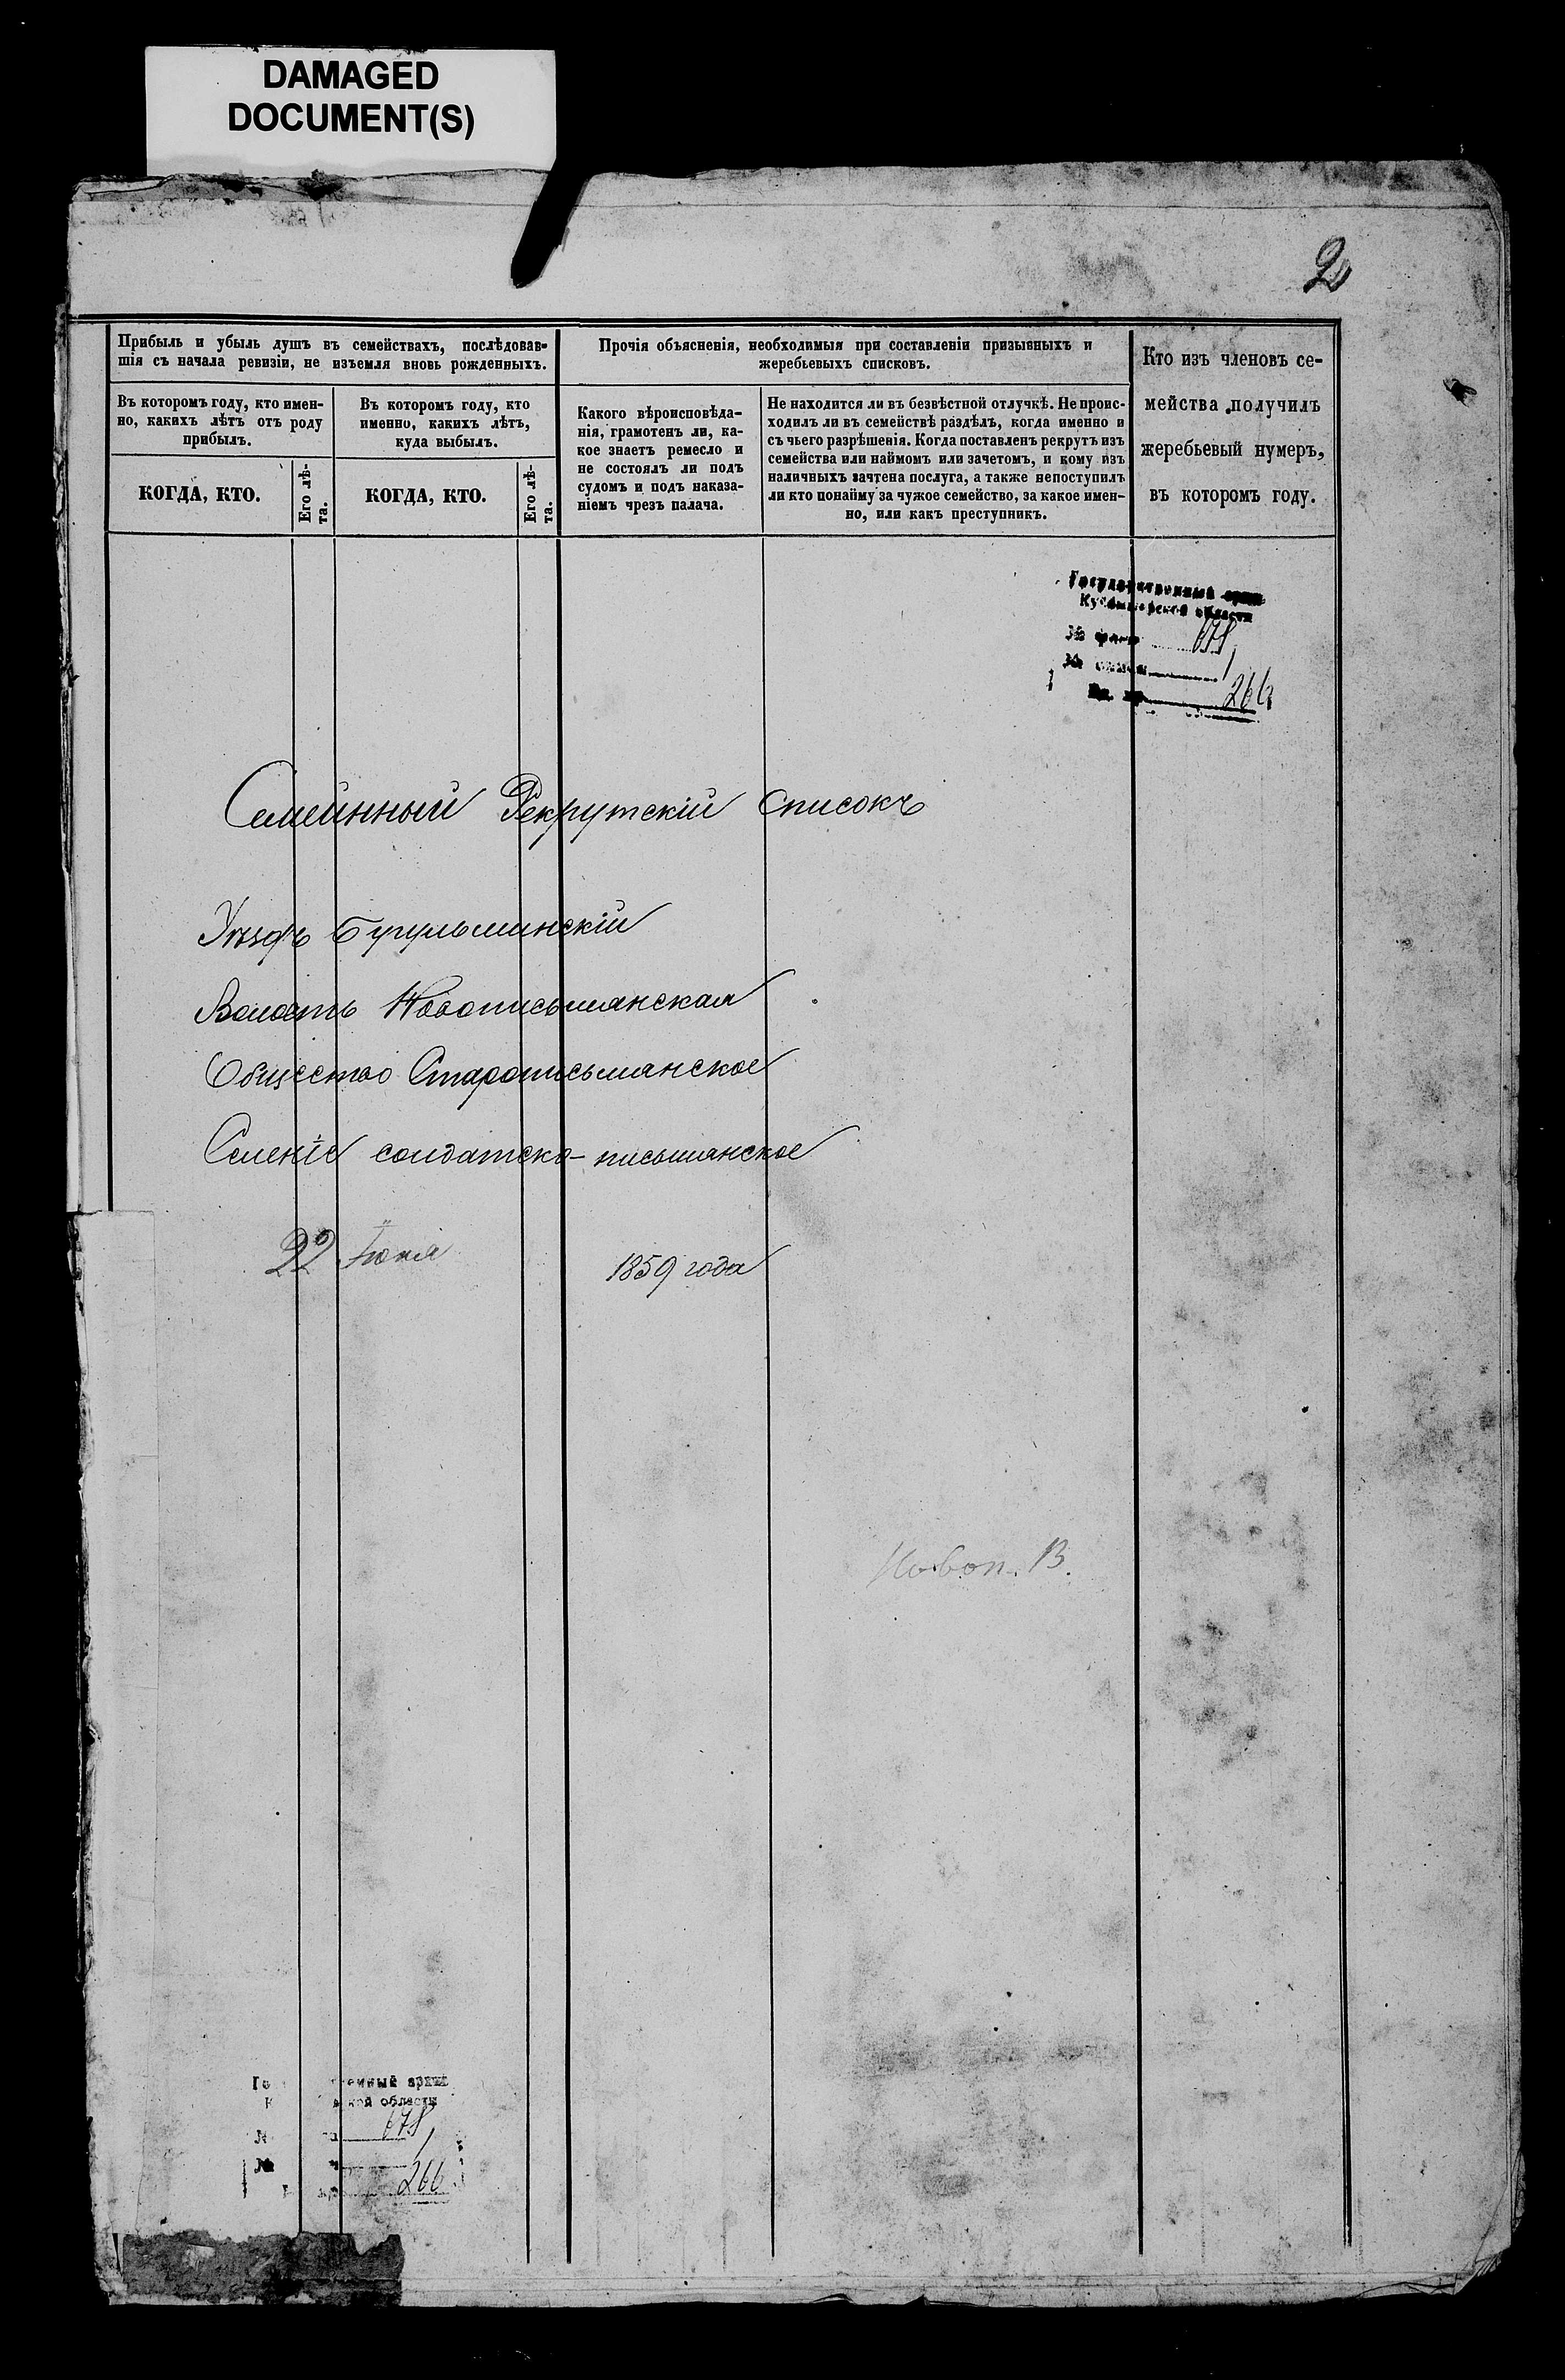 DAMAGED
DOCUMENT(S)
2
Прибыль и убыль душъ въ семействахъ, послѣдовав-
шія съ начала ревизіи, не изъемля вновь рожденныхъ.
Въ которомъ году, кто имен-
но, какихъ лѣтъ отъ роду
прибылъ.
КОГДА, КТО.
Его лѣ-
та.
Въ которомъ году, кто
именно, какихъ лѣтъ,
куда выбылъ.
КОГДА, КТО.
Его лѣ-
та.
Прочія объясненія, необходимыя при составленіи призывныхъ и
жеребьевыхъ списковъ.
Какого вѣроисповѣда-
нія, грамотенъ ли, ка-
кое знаетъ ремесло и
не состоялъ ли подъ
судомъ и подъ наказа-
ніемъ чрезъ палача.
Не находится ли въ безвѣстной отлучкѣ. Не проис-
ходилъ ли въ семействѣ раздѣлъ, когда именно и
съ чьего разрѣшенія. Когда поставленъ рекрутъ изъ
семейства или наймомъ или зачетомъ, и кому изъ
наличныхъ зачтена послуга, а также непоступилъ
ли кто понайму за чужое семейство, за какое имен-
но, или какъ преступникъ.
Кто изъ членовъ се-
мейства получилъ
жеребьевый нумеръ,
въ которомъ году.
Государственный архив
Куйбышевской области
№ фонда 678
№ описи 1
Ед. хр. 266
Семейнный Рекрутскій Списокъ
Уѣздъ Бугульминскій
Волость Новописьмянская
Общество Старописьмянское
Селеніе солдатско-письмянское
22 Іюня 1859 года
Новоп. В.
678
1
266